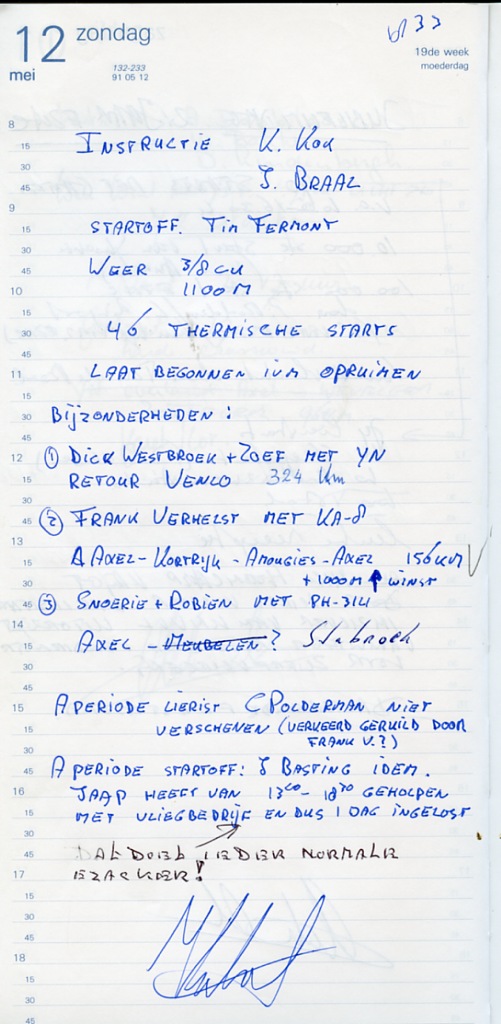 12 zondag
mei
132-233
91 05 12
19de week
moederdag
8
15 INSTRUCTIE K. KOK
30
45 J. BRAAL
9
15 STARTOFF. TIM FERMONT
30
45 WEER 3/8 CU
10 1100 M
15
30 46 THERMISCHE STARTS
45
11 LAAT BEGONNEN IVM OPRUIMEN
15
30 BIJZONDERHEDEN :
45
12 ① DICK WESTBROEK + ZOEF MET YN
15 RETOUR VENLO 324 Km
30
45 ② FRANK VERHELST MET KA-8
13
15 Δ AXEL - KORTRIJK - AMOUGIES - AXEL 156 KM
30 + 1000M ↑ WINST
45 ③ SNOERIE + ROBIEN MET PH-314
14
15 AXEL - MEUBELEN? Stabroek
30
45
15 A PERIODE LIERIST C POLDERMAN NIET
15 VERSCHENEN (VERKEERD GERUILD DOOR
30 FRANK V.?)
45 A PERIODE STARTOFF: J BASTING IDEM.
16 JAAP HEEFT VAN 13⁰⁰ - 18³⁰ GEHOLPEN
15 MET VLIEGBEDRIJF EN DUS 1 DAG INGELOST
30
45 DAT DOET IEDER NORMALE
17 EZACKER!
15
30
45
18
15
30
45